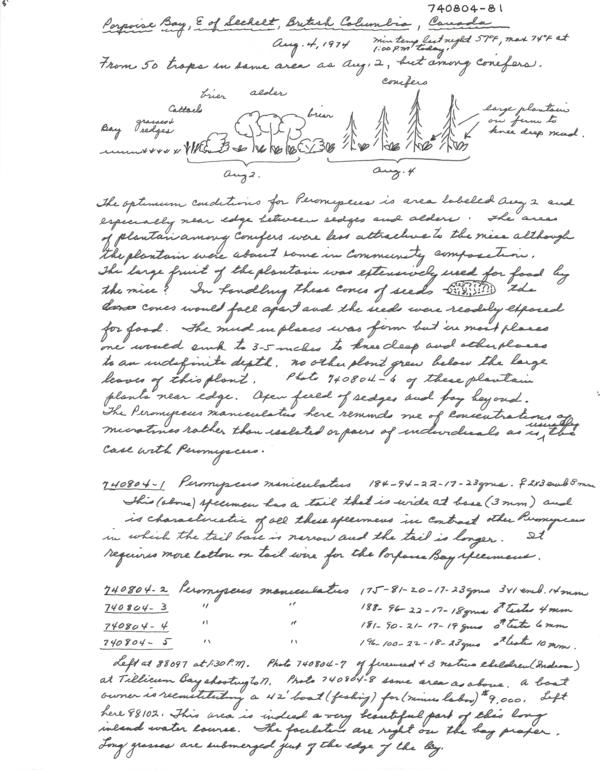 740804-81
Porpoise Bay, E of Sechelt, British Columbia, Canada
Aug. 4, 1974 Min temp last night 57°F, max 74°F at
1:00 P.M. today.
From 50 traps in same area as Aug. 2, but among conifers.
conifers
brier alder
Cattails brier
Bay grasses &
sedges
large plantain
on firm to
knee deep mud.
Aug 2. Aug. 4
The optimum conditions for Peromyscus is area labeled Aug 2 and
especially near edge between sedges and alders. The areas
of plantain among conifers were less attractive to the mice although
the plantain were about same in community composition.
The large fruit of the plantain was extensively used for food by
the mice? In handling these cones of seeds the
cones would fall apart and the seeds were readily exposed
for food. The mud in places was firm but in most places
one would sink to 3-5 inches to knee deep and other places
to an indefinite depth. No other plant grew below the large
leaves of this plant. Photo 740804-6 of these plantain
plants near edge. Open field of sedges and bay beyond.
The Peromyscus maniculatus here reminds me of concentrations of
microtines rather than isolated or pairs of individuals as is usually the
case with Peromyscus.
740804-1 Peromyscus maniculatus 184-94-22-17-23gms. ♀ 2x3 emb 8mm
This (above) specimen has a tail that is wide at base (3 mm) and
is characteristic of all these specimens in contrast other Peromyscus
in which the tail base is narrow and the tail is longer. It
requires more cotton on tail wire for the Porpoise Bay specimens.
740804-2 Peromyscus maniculatus 175-81-20-17-23gms 3x1 emb. 14mm
740804-3 " " 188-96-22-17-18gms ♂ testes 4 mm
740804-4 " " 181-90-21-17-19gms ♂ testes 6 mm
740804-5 " " 196-100-22-18-23gms ♂ testes 10 mm.
Left at 88097 at 1:30 P.M. Photo 740804-7 of firewood + 3 native children (Indian)
at Tillicum Bay shooting to N. Photo 740804-8 same area as above. A boat
owner is reconstituting a 42' boat (fishing) for (minus labor) $9,000. Left
here 88102. This area is indeed a very beautiful part of this long
inland water course. The facilities are right on the bay proper.
Long grasses are submerged just of the edge of the bay.